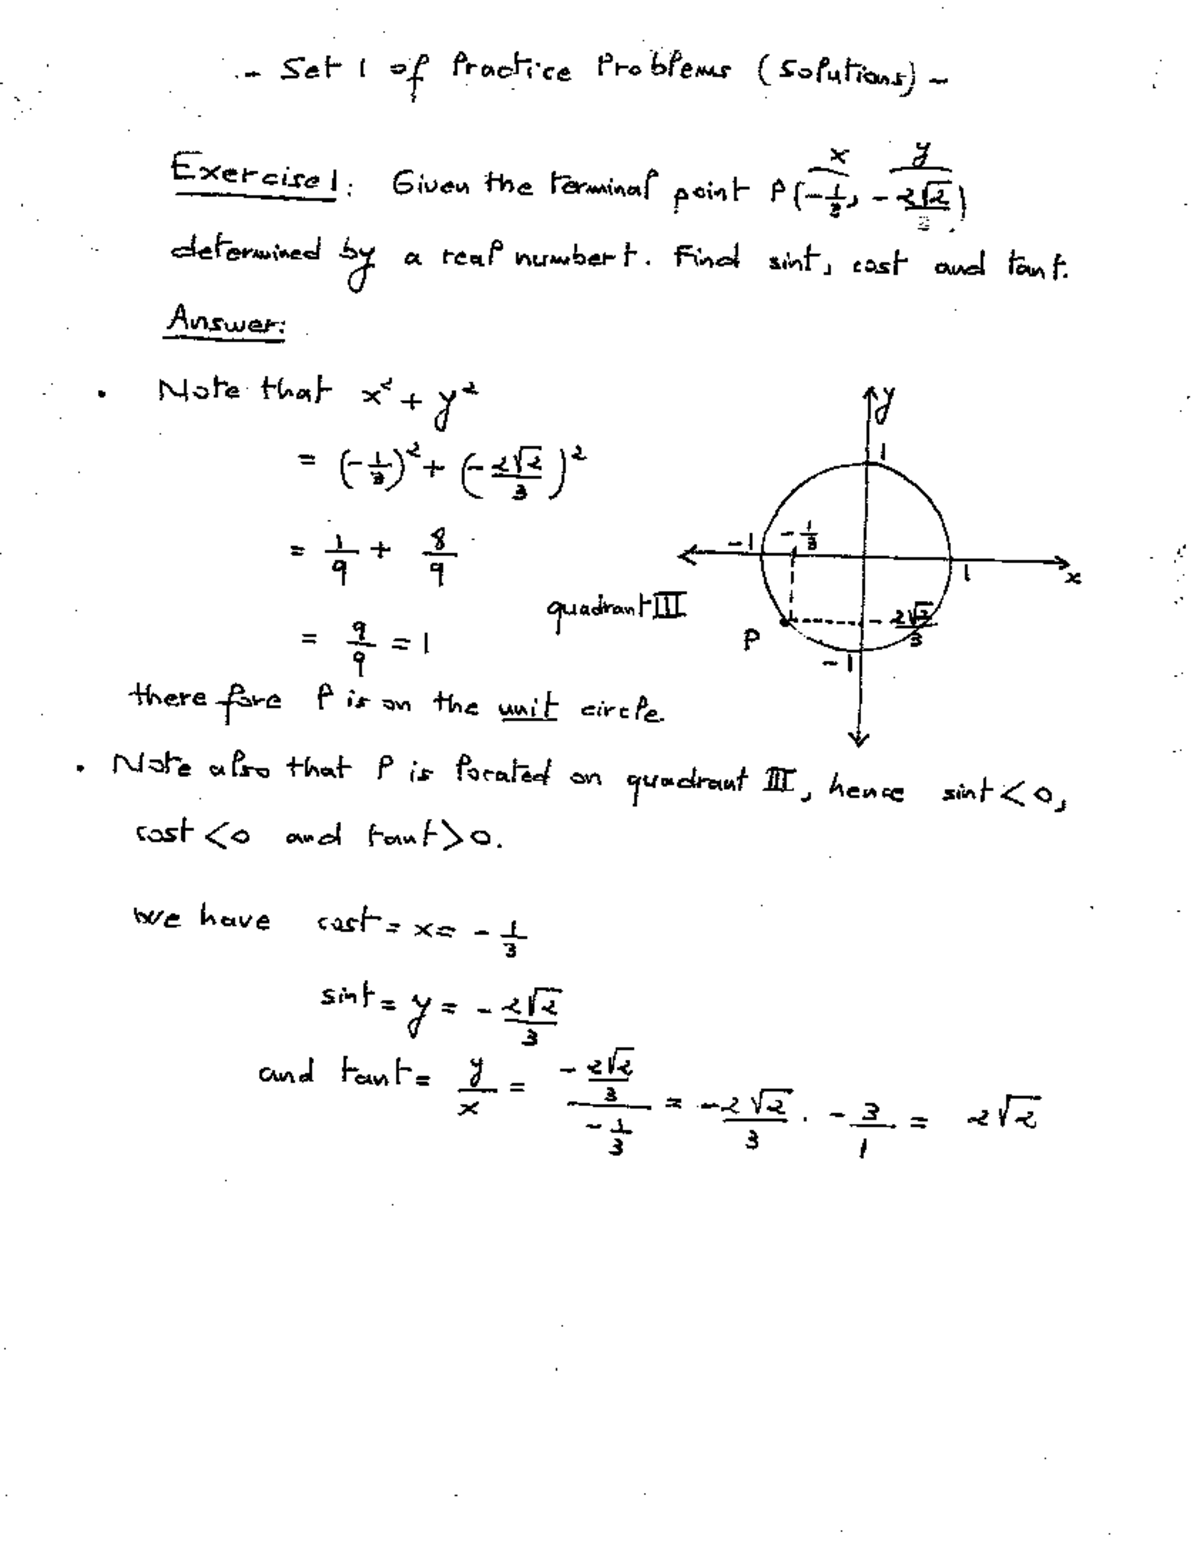 - Set 1 of Practice Problems (Solutions) -
x y
Exercise 1: Given the terminal point P(-1/3, -2√2/3)
determined by a real number t. Find sint, cost and tant.
Answer:
• Note that x² + y²
= (-1/3)² + (-2√2/3)²
= 1/9 + 8/9
= 9/9 = 1
y
1
-1 -1/3
1 x
quadrant III
-2√2/3
P
-1
therefore P is on the unit circle.
• Note also that P is located on quadrant III, hence sint < 0,
cost < 0 and tant > 0.
we have cost = x = -1/3
sint = y = -2√2/3
and tant = y/x = (-2√2/3)/(-1/3) = -2√2/3 . -3/1 = 2√2